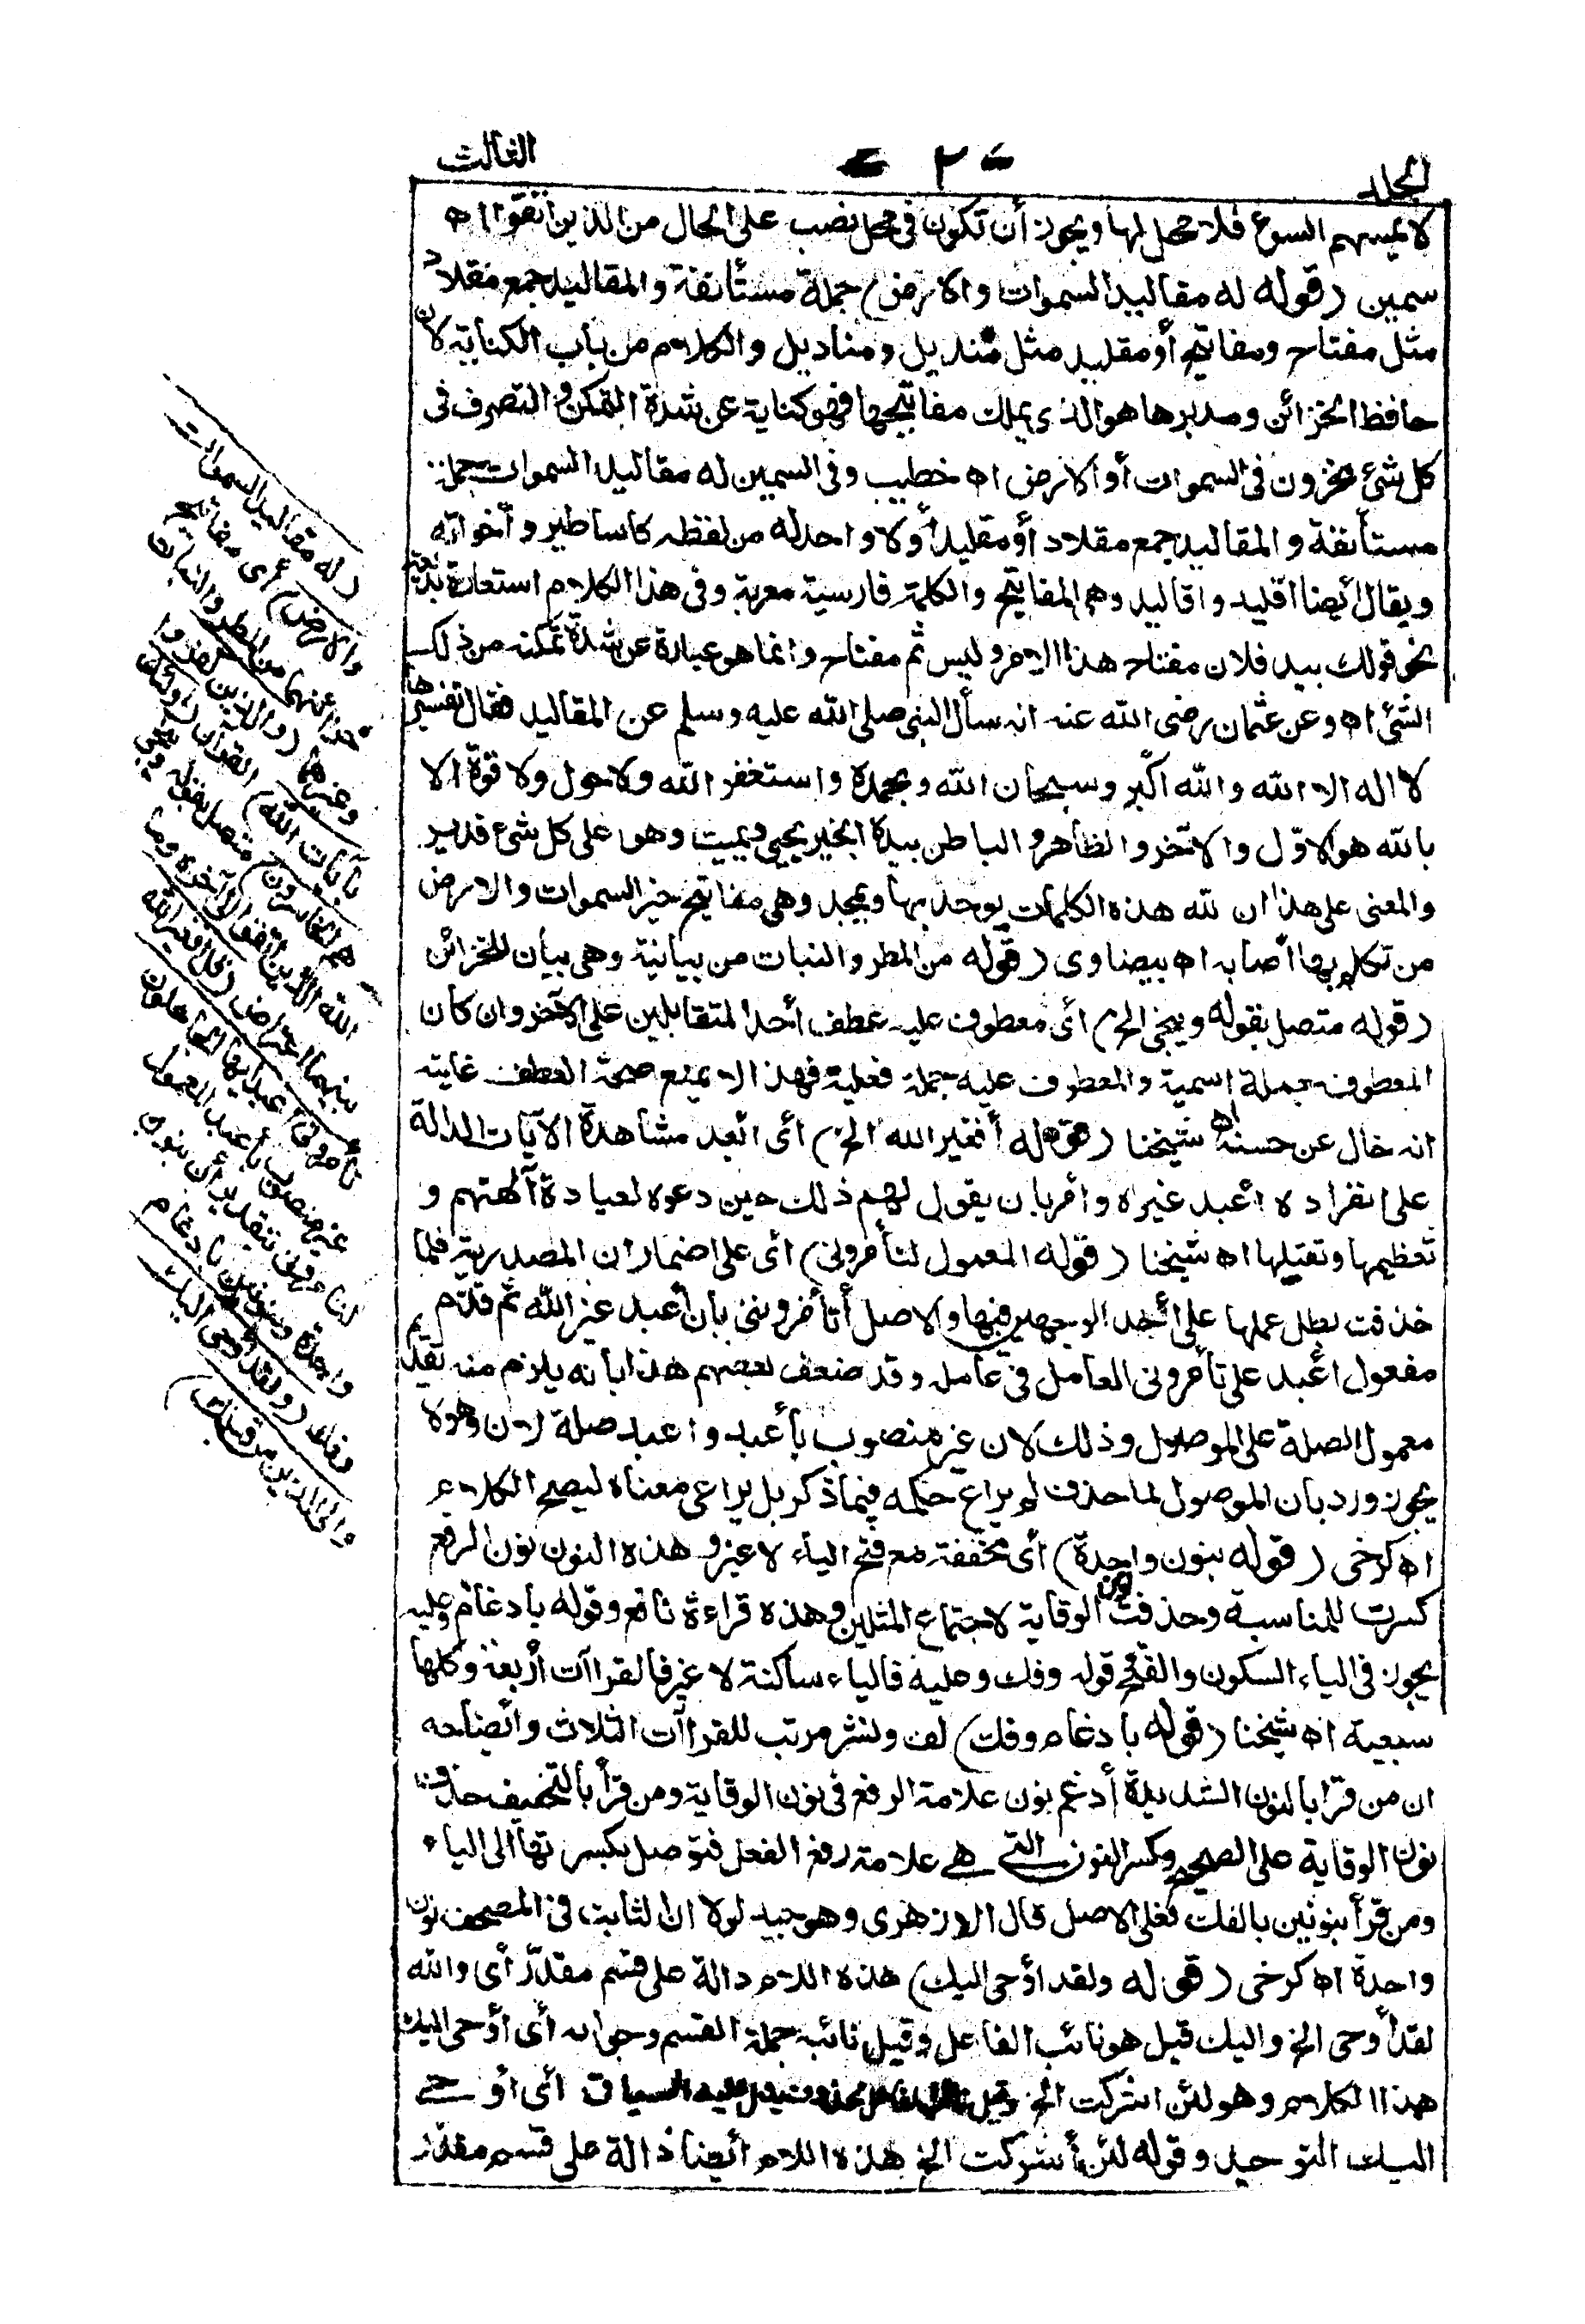 المجلد
٢
الثالث
لا يمسهم السوء فلا محل لها ويجوز أن تكون فى محل نصب على الحال من الذين اتقوا اه
سمين (قوله له مقاليد السموات والارض) جملة مستأنفة والمقاليد جمع مقلاد
مثل مفتاح ومفاتيح أو مقليد مثل منديل ومناديل والكلام من باب الكناية لان
حافظ الخزائن ومدبرها هو الذى يملك مفاتيحها فهو كناية عن شدة التمكن والتصرف فى
كل شئ مخزون فى السموات أو الارض اه خطيب وفى السمين له مقاليد السموات جملة
مستأنفة والمقاليد جمع مقلاد أو مقليد أولا واحد له من لفظه كاساطير وأخواته
ويقال أيضا اقليد واقاليد وهى المفاتيح والكلمة فارسية معربة وفى هذا الكلام استعارة بديعة
نحو قولك بيد فلان مفتاح هذا الامر وليس ثم مفتاح وانما هو عبارة عن شدة تمكنه من ذلك
الشئ اه وعن عثمان رضى الله عنه انه سأل النبى صلى الله عليه وسلم عن المقاليد فقال تفسيرها
لا اله الا الله والله أكبر وسبحان الله وبحمده واستغفر الله ولا حول ولا قوة الا
بالله هو الاول والآخر والظاهر والباطن بيده الخير يحيى ويميت وهو على كل شئ قدير
والمعنى على هذا ان لله هذه الكلمات يوحد بها ويمجد وهى مفاتيح خير السموات والارض
من تكلم بها أصابه اه بيضاوى (قوله من المطر والنبات من بيانية وهى بيان للخزائن
(قوله متصل بقوله وينجى الخ) أى معطوف عليه عطف أحد المتقابلين على الآخر وان كان
المعطوف جملة اسمية والمعطوف عليه جملة فعلية فهذا لا يمنع صحة العطف غايته
انه خال عن حسنه اه شيخنا (قوله أفغير الله الخ) أى أبعد مشاهدة الآيات الدالة
على انفراده أعبد غيره وأمر بان يقول لهم ذلك حين دعوه لعبادة آلهتهم و
تعظيمها وتقبيلها اه شيخنا (قوله المعمول لتأمرونى) أى على اضمار ان المصدرية فلما
حذفت بطل عملها على أحد الوجهين فيها والاصل أتأمروننى بأن أعبد غير الله ثم قدم
مفعول اعبد على تأمرونى العامل فى عامله وقد ضعف بعضهم هذا بانه يلزم منه تقديم
معمول الصلة على الموصول وذلك لان غير منصوب بأعبد واعبد صلة لان وهو لا
يجوز ورد بان الموصول لما حذف لم يراع حكمه فيما ذكر بل يراعى معناه ليصح الكلام
اه كرخى (قوله بنون واحدة) أى مخففة مع فتح الياء لا غير وهذه النون نون الرفع
كسرت للمناسبة وحذفت نون الوقاية لاجتماع المثلين وهذه قراءة نافع وقوله بادغام وعليه
يجوز فى الياء السكون والفتح قوله وفك وعليه فالياء ساكنة لا غير فالقراآت أربعة وكلها
سبعية اه شيخنا (قوله بادغام وفك) لف ونشر مرتب للقراآت الثلاث وايضاحه
ان من قرا بالنون الشديدة أدغم نون علامة الرفع فى نون الوقاية ومن قرأ بالتخفيف حذف
نون الوقاية على الصحيح وكسر النون التى هى علامة رفع الفعل فتوصل بكسرتها الى الياء
ومن قرأ بنونين بالفك فعلى الاصل قال الازهرى وهو جيد لولا ان الثابت فى المصحف نون
واحدة اه كرخى (قوله ولقد أوحى اليك) هذه اللام دالة على قسم مقدر أى والله
لقد أوحى الخ واليك قيل هو نائب الفاعل وقيل نائبه جملة القسم وجوابه أى أوحى اليك
هذا الكلام وهو لئن اشركت الخ وقيل نائب الفاعل محذوف يدل عليه السياق أى أوحى
اليك التوحيد وقوله لئن أشركت الخ هذه اللام أيضا دالة على قسم مقدر
(له مقاليد السموات
والارض) أى مفاتيح
خزائنهما من المطر والنبات
وغيرهما (والذين كفروا
بآيات الله) القرآن (أولئك
هم الخاسرون) متصل بقوله وينجى
الله الذين اتقوا الخ وما
بينهما اعتراض (قل أفغير الله
تأمرونى أعبد أيها الجاهلون)
غير منصوب بأعبد المعمول
لتأمرونى بتقدير أن بنون
واحدة وبنونين بادغام
وفك (ولقد أوحى اليك
والى الذين من قبلك)